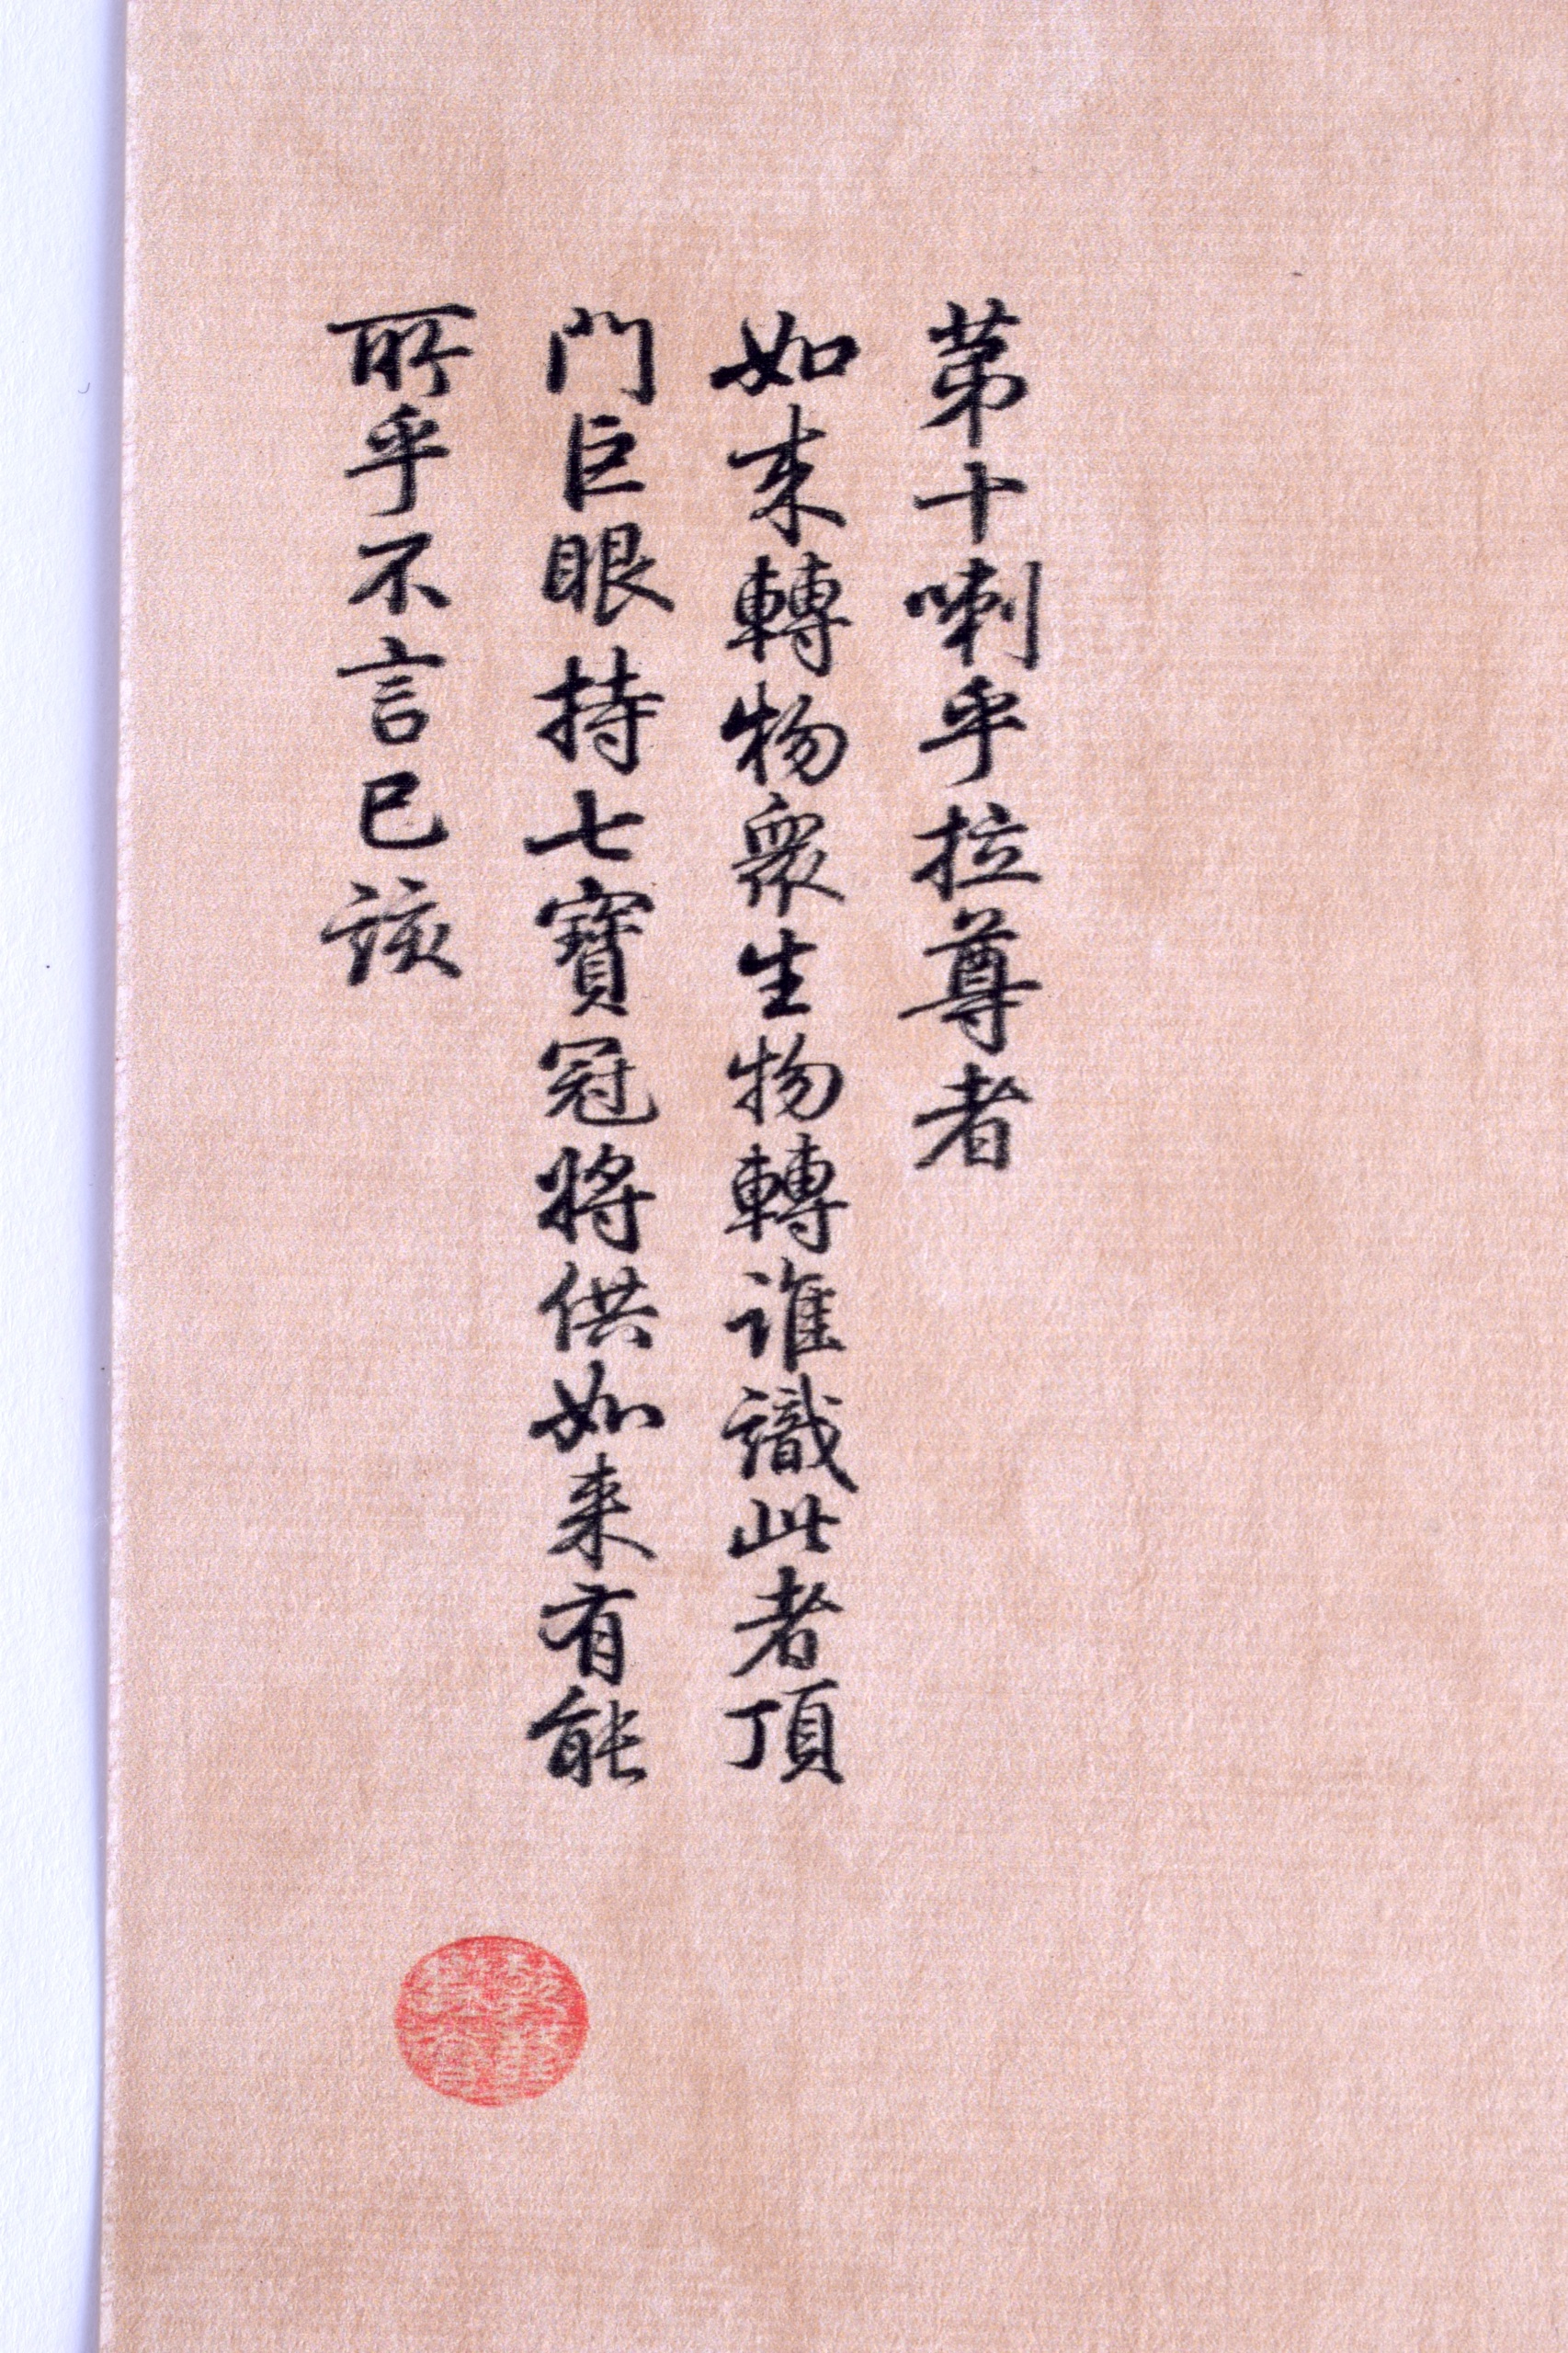 第十喇乎拉尊者
如来轉物衆生物轉誰識此者頂
門巨眼持七寶冠將供如来有能
所乎不言已該